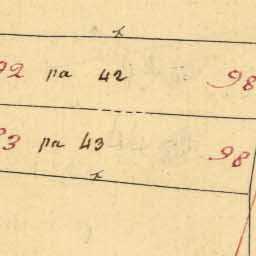 92 pa 42 98
3 pa 43 98